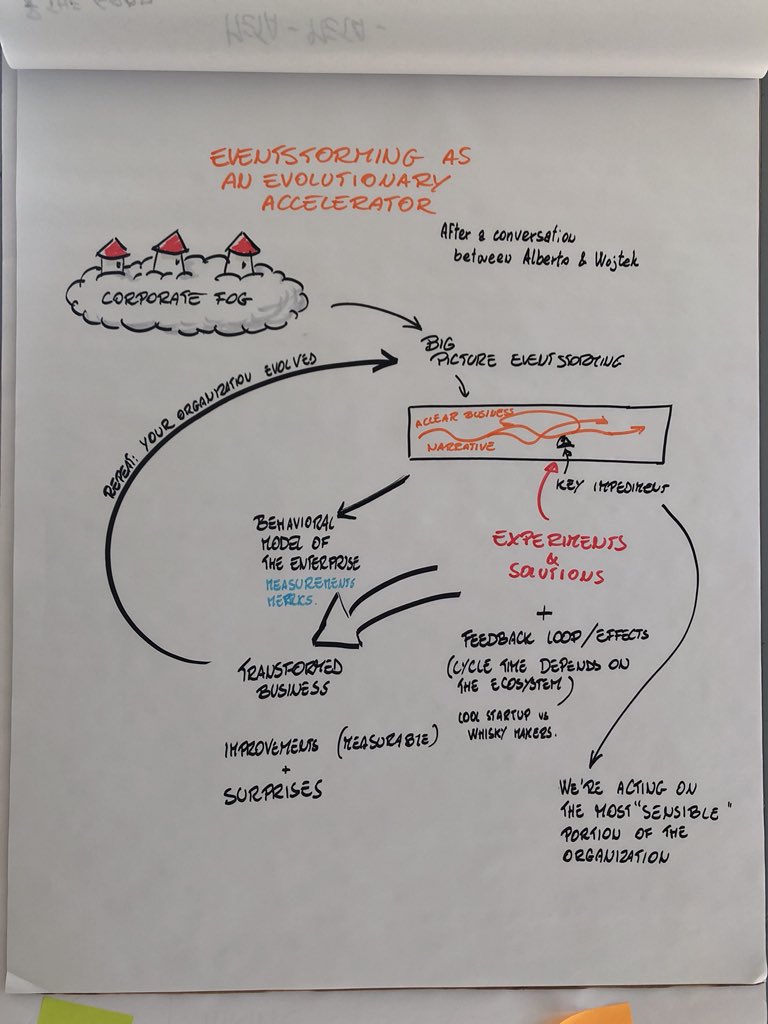 EVENTSTORMING AS
AN EVOLUTIONARY
ACCELERATOR
After a conversation
between Alberto & Wojtek
CORPORATE FOG
BIG
PICTURE EVENTSTORMING
REPEAT: YOUR ORGANIZATION EVOLVED
A CLEAR BUSINESS
NARRATIVE
KEY IMPEDIMENT
BEHAVIORAL
MODEL OF
THE ENTERPRISE
MEASUREMENTS
METRICS.
EXPERIMENTS
&
SOLUTIONS
+
FEEDBACK LOOP/EFFECTS
(CYCLE TIME DEPENDS ON
THE ECOSYSTEM)
COOL STARTUP vs
WHISKY MAKERS.
TRANSFORMED
BUSINESS
IMPROVEMENTS (MEASURABLE)
+
SURPRISES
WE'RE ACTING ON
THE MOST "SENSIBLE"
PORTION OF THE
ORGANIZATION